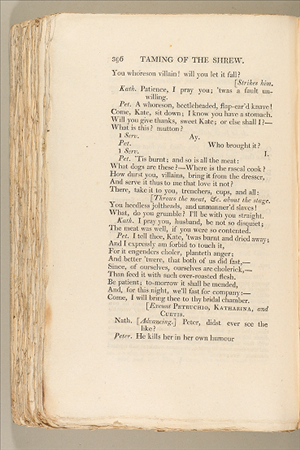 256 TAMING OF THE SHREW.
You whoreson villain! will you let it fall?
[Strikes him.
Kath. Patience, I pray you; 'twas a fault un-
willing.
Pet. A whoreson, beetleheaded, flap-ear'd knave!
Come, Kate, sit down; I know you have a stomach.
Will you give thanks, sweet Kate; or else shall I?—
What is this? mutton?
1 Serv. Ay.
Pet. Who brought it?
1 Serv. I.
Pet. 'Tis burnt; and so is all the meat:
What dogs are these?—Where is the rascal cook?
How durst you, villains, bring it from the dresser,
And serve it thus to me that love it not?
There, take it to you, trenchers, cups, and all:
[Throws the meat, &c. about the stage.
You heedless joltheads, and unmanner'd slaves!
What, do you grumble? I'll be with you straight.
Kath. I pray you, husband, be not so disquiet;
The meat was well, if you were so contented.
Pet. I tell thee, Kate, 'twas burnt and dried away;
And I expressly am forbid to touch it,
For it engenders choler, planteth anger;
And better 'twere, that both of us did fast,—
Since, of ourselves, ourselves are cholerick,—
Than feed it with such over-roasted flesh.
Be patient; to-morrow it shall be mended,
And, for this night, we'll fast for company:—
Come, I will bring thee to thy bridal chamber.
[Exeunt PETRUCHIO, KATHARINA, and
CURTIS.
Nath. [Advancing.] Peter, didst ever see the
like?
Peter. He kills her in her own humour